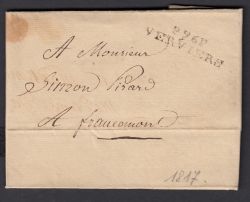 A Monsieur
Simon Pirard
A francomont
96P
VERVIERS
1817.